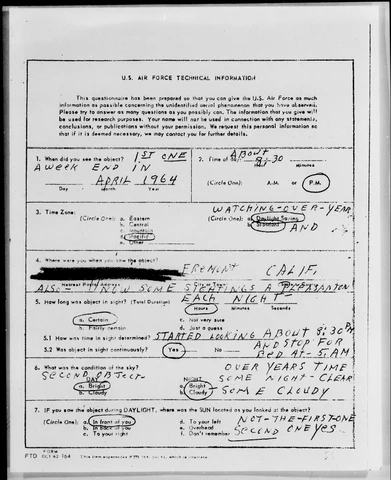 U.S. AIR FORCE TECHNICAL INFORMATION
This questionnaire has been prepared so that you can give the U.S. Air Force as much
information as possible concerning the unidentified aerial phenomenon that you have observed.
Please try to answer as many questions as you possibly can. The information that you give will
be used for research purposes. Your name will not be used in connection with any statements,
conclusions, or publications without your permission. We request this personal information so
that if it is deemed necessary, we may contact you for further details.
1. When did you see the object? 1ST ONE
A WEEK END IN
APRIL 1964
Day Month Year
2. Time of ABOUT
8:30
Minutes
(Circle One): A.M. or P.M.
3. Time Zone:
(Circle One): a. Eastern
b. Central
c. Mountain
d. Pacific
e. Other
WATCHING-OVER-YEAR
(Circle One): a. Daylight Saving
b. Standard AND
4. Where were you when you saw the object?
FREMONT CALIF.
Nearest Postal Address
ALSO- SOME SIGHTINGS A PLEASANTON
5. How long was object in sight? (Total Duration) EACH NIGHT-
Hours Minutes Seconds
a. Certain
b. Fairly certain
c. Not very sure
d. Just a guess
5.1 How was time in sight determined? STARTED LOOKING ABOUT 8:30 PM
5.2 Was object in sight continuously? Yes No AND STOP FOR
BED AT-5 AM
6. What was the condition of the sky? OVER YEARS TIME
SECOND OBJECT-
DAY
a. Bright
b. Cloudy
NIGHT
a. Bright
b. Cloudy
SOME NIGHT-CLEAR
SOME CLOUDY
7. IF you saw the object during DAYLIGHT, where was the SUN located as you looked at the object?
(Circle One): a. In front of you
b. In back of you
c. To your right
d. To your left
e. Overhead
f. Don't remember
NOT-THE-FIRST-ONE
SECOND ONE YES
FORM
FTD OCT 62 164